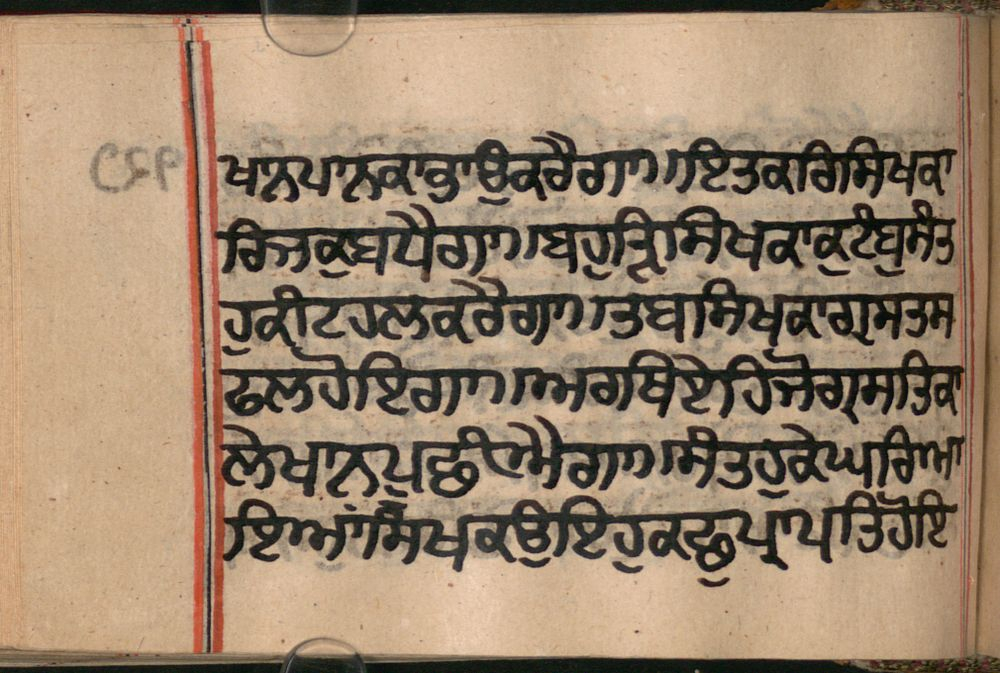 ਖਾਨਪਾਨਕਾਭਾਉਕਰੈਗਾ॥ਇਤਕਰਿਸਿਖਕਾ
ਰਿਜਕੁਬਧੈਗਾ॥ਬਹੁੜਿਸਿਖਕਾਕੁਟੰਬੁਸੰਤ
ਹੁਕੀਟਹਲਕਰੈਗਾ॥ਤਬਸਿਖੁਕਾਗ੍ਰਸਤਸ
ਫਲਹੋਇਗਾ॥ਅਗਥਿਏਹਿਜੋਗ੍ਰਸਤਿਕਾ
ਲੇਖਾਨਪੁਛੀਐਗਾ॥ਸੰਤਹੁਕੇਘਰਿਆ
ਇਆਂਸਿਖਕਉਇਹੁਕਛੁਪ੍ਰਾਪਤਿਹੋਇ